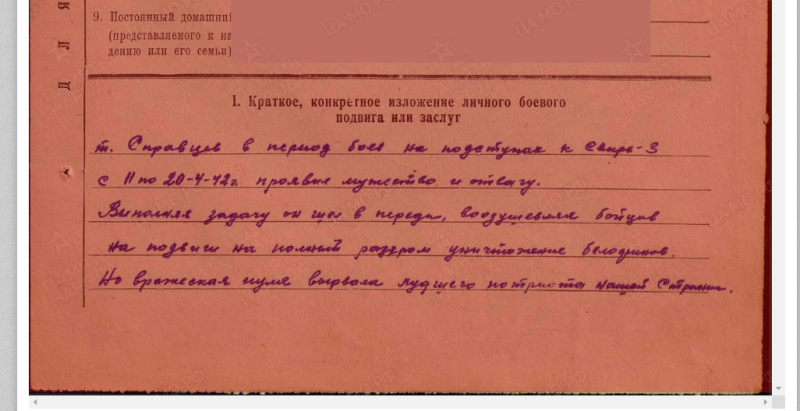 ДЛЯ
9. Постоянный домашний
(представляемого к на
дению или его семьи)
I. Краткое, конкретное изложение личного боевого
подвига или заслуг
т. Справцев в период боев на подступах к Свирь-3
с 11 по 20-4-42г. проявил мужество и отвагу.
Выполняя задачу он шел в переди, воодушевляя бойцов
на подвиги на полный разгром уничтожение белофинов.
Но вражеская пуля вырвала лудшего патриота нашей Страны.